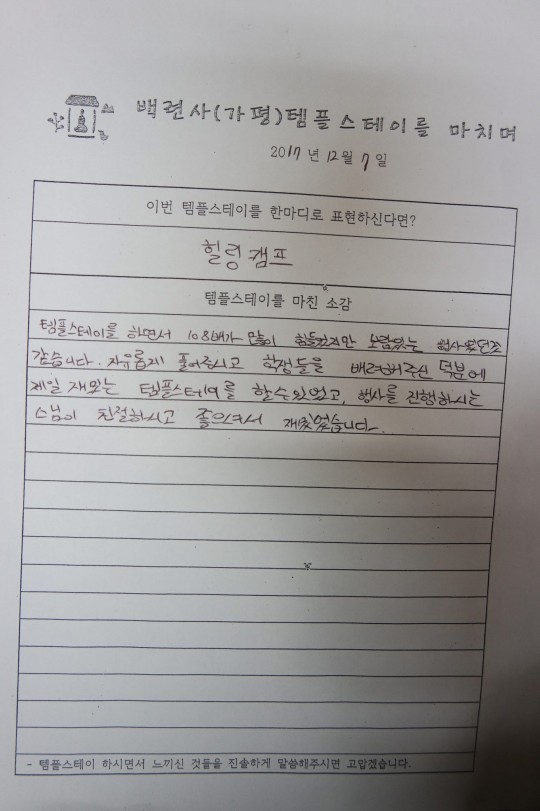 백련사(가평)템플스테이를 마치며
2017년 12월 7일
이번 템플스테이를 한마디로 표현하신다면?
힐링캠프
템플스테이를 마친 소감
템플스테이를 하면서 108배가 많이 힘들었지만 보람있는 행사였던것
같습니다. 자유롭게 풀어주시고 학생들을 배려해주신 덕분에
제일 재밌는 템플스테이를 할수 있었고, 행사를 진행하시는
스님이 친절하시고 좋으셔서 재밌었습니다.
- 템플스테이 하시면서 느끼신 것들을 진솔하게 말씀해주시면 고맙겠습니다.